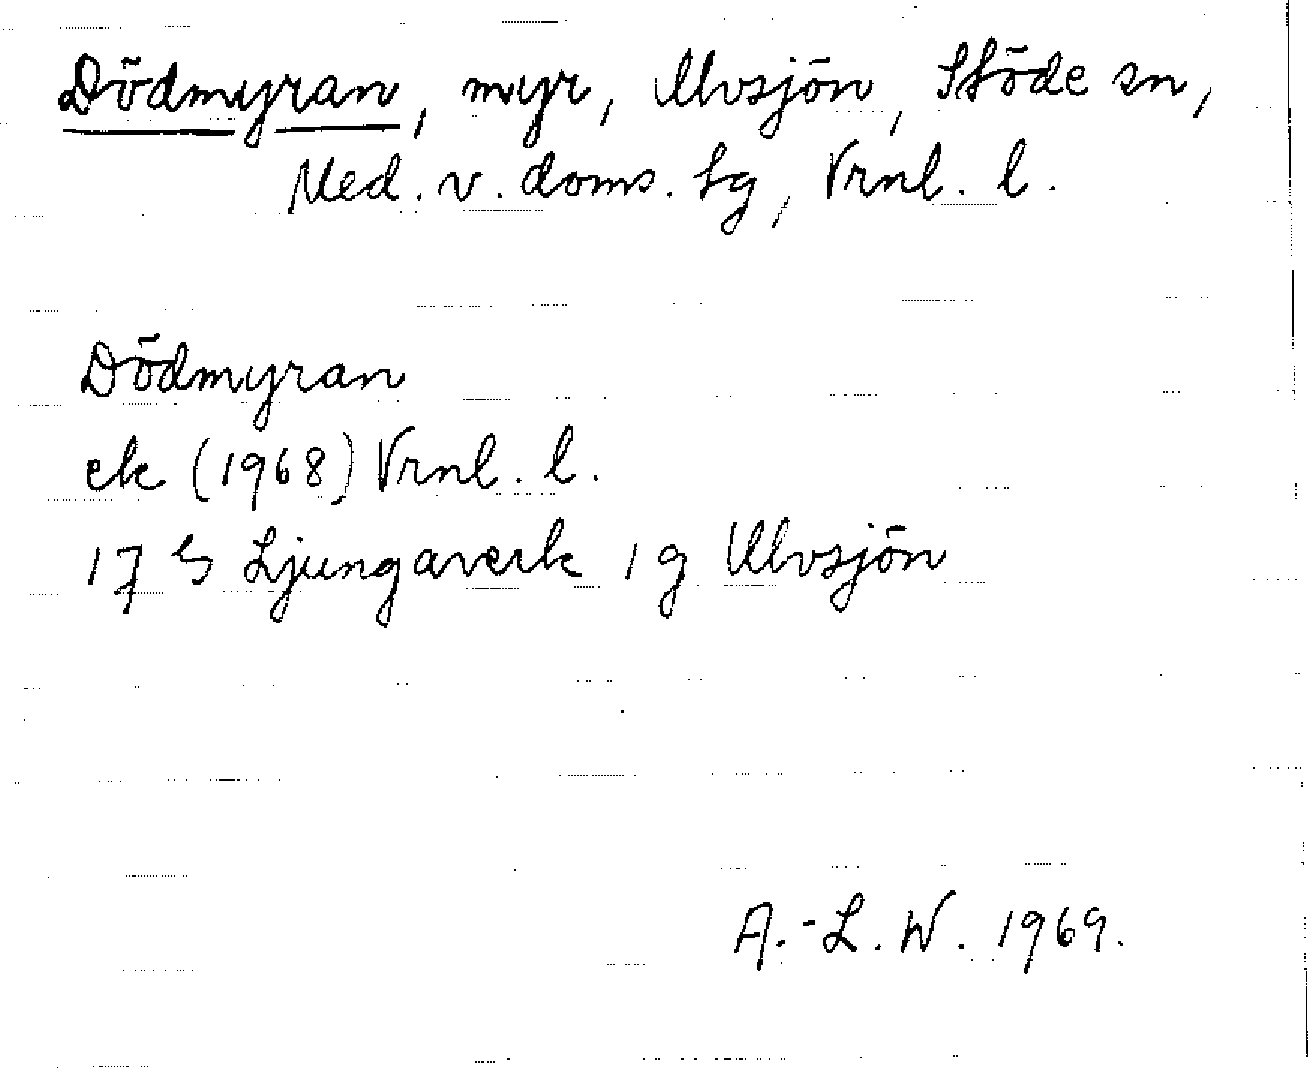 Dödmyran, myr, Ulvsjön, Stöde sn,
Med. v. doms. tg, Vrnl. l.
Dödmyran
ek (1968) Vrnl. l.
17 G Ljungaverk 1 g Ulvsjön
A.-L. W. 1969.